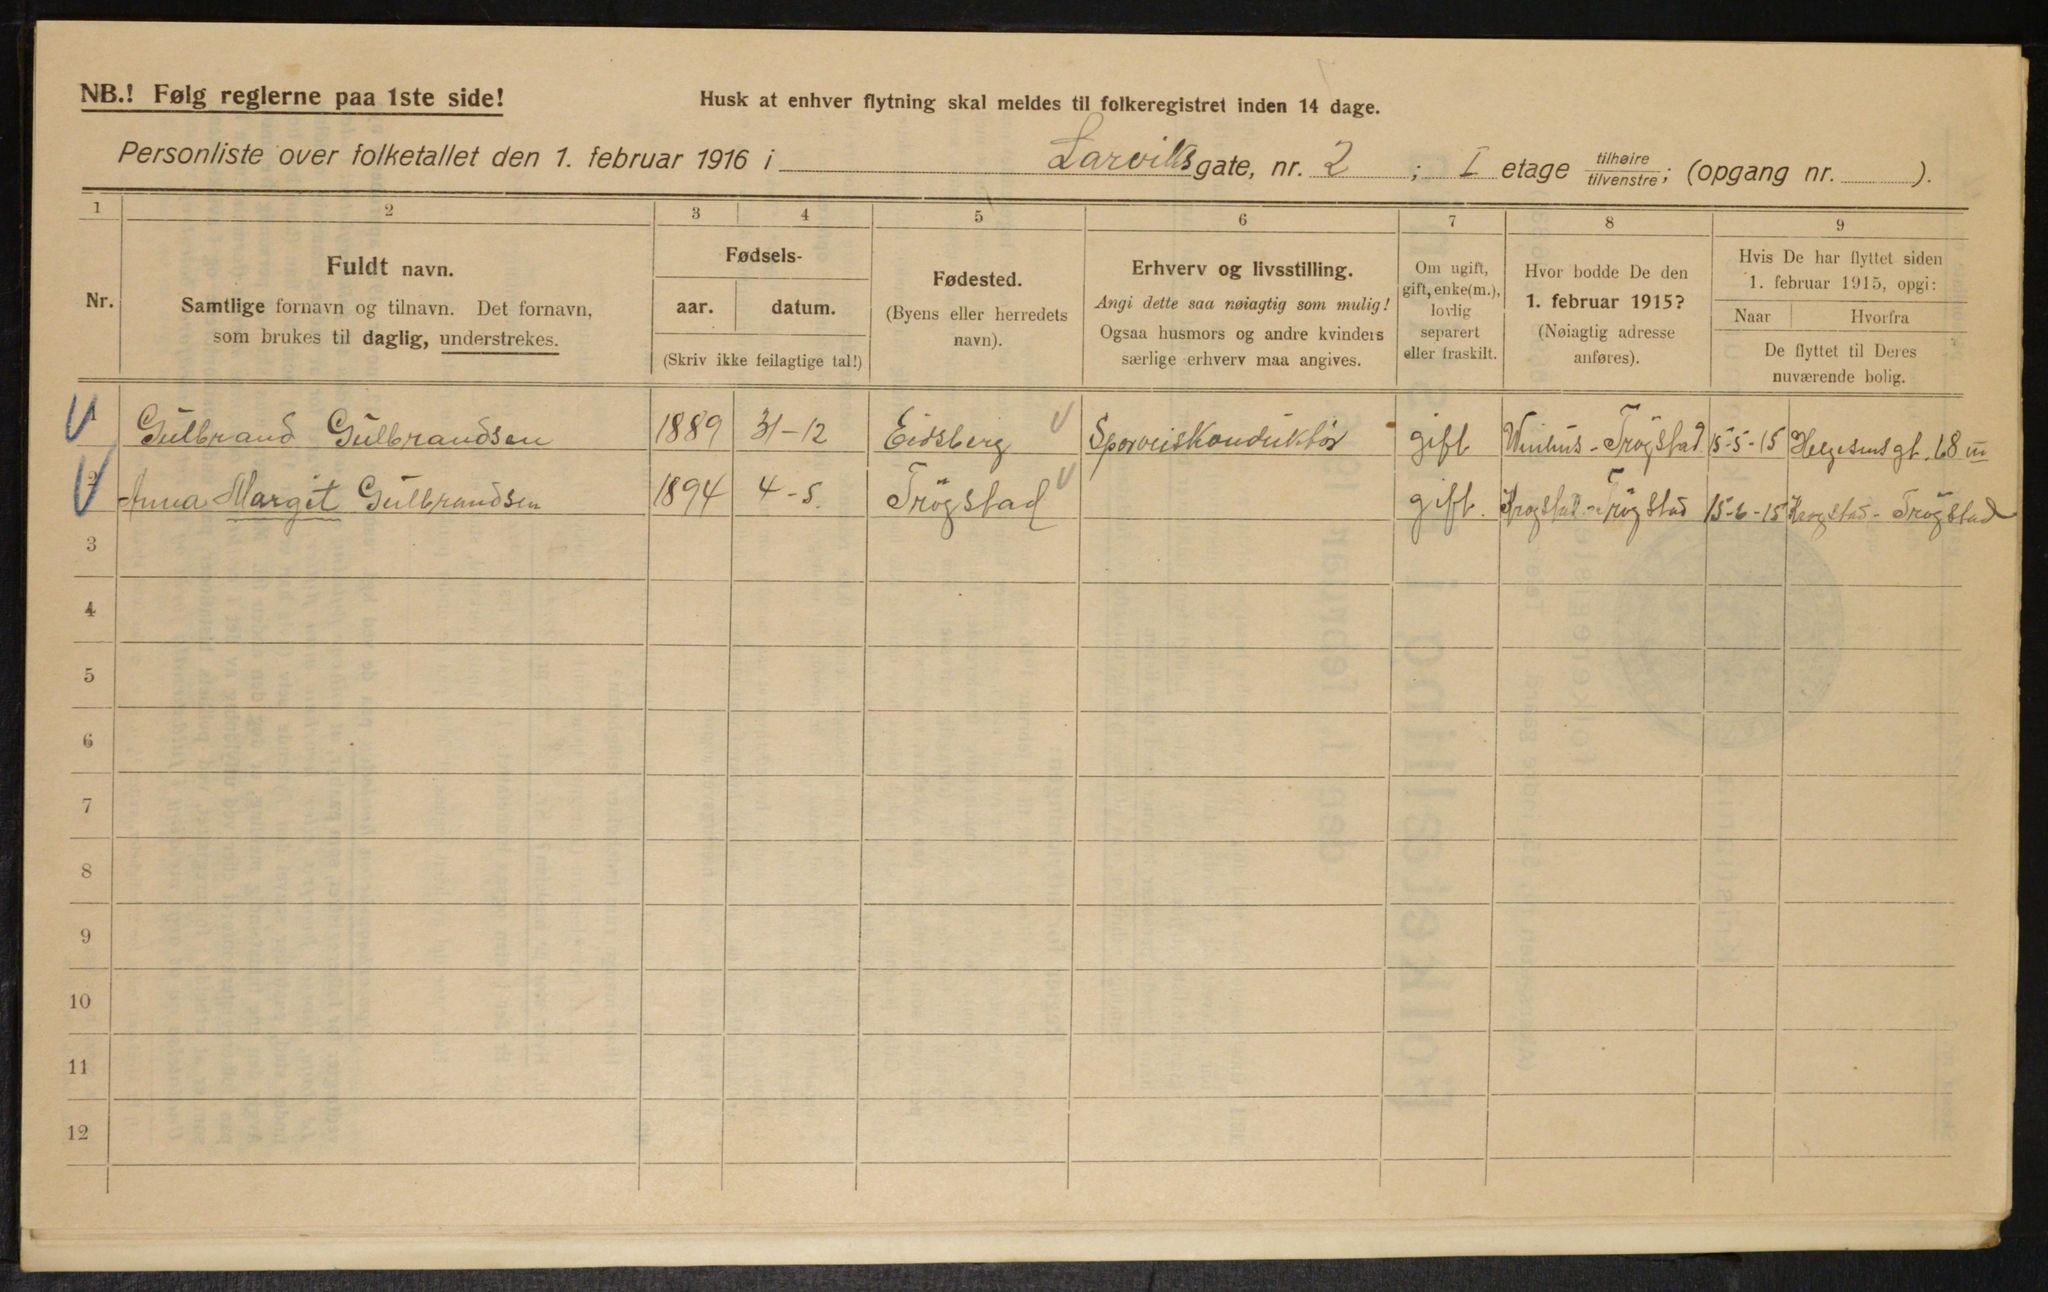 NB.! Følg reglerne paa 1ste side!
Husk at enhver flytning skal meldes til folkeregistret inden 14 dage.
Personliste over folketallet den 1. februar 1916 i Larviksgate, nr. 2 ; I etage tilhøire/tilvenstre; (opgang nr. ).
1 2 3 4 5 6 7 8 9
Nr.
Fuldt navn.
Samtlige fornavn og tilnavn. Det fornavn,
som brukes til daglig, understrekes.
Fødsels-
aar. datum.
(Skriv ikke feilagtige tal!)
Fødested.
(Byens eller herredets
navn).
Erhverv og livsstilling.
Angi dette saa nøiagtig som mulig!
Ogsaa husmors og andre kvinders
særlige erhverv maa angives.
Om ugift,
gift, enke(m.),
lovlig
separert
eller fraskilt.
Hvor bodde De den
1. februar 1915?
(Nøiagtig adresse
anføres).
Hvis De har flyttet siden
1. februar 1915, opgi:
Naar Hvorfra
De flyttet til Deres
nuværende bolig.
1 Gulbrand Gulbrandsen 1889 31-12 Eidsberg Sporveiskonduktør gift - Trøgstad 15-5-15 Helgesensgt. 68 III
2 Anna Margit Gulbrandsen 1894 4-5. Trögstad gift. Krogstad - Trögstad 15-6-15 Krogstad - Trögstad
3
4
5
6
7
8
9
10
11
12